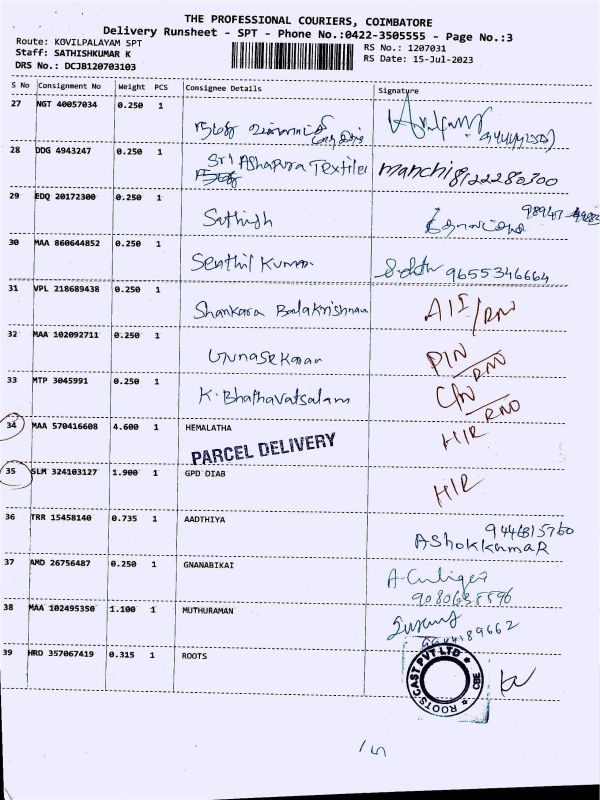 THE PROFESSIONAL COURIERS, COIMBATORE
Delivery Runsheet - SPT - Phone No.:0422-3505555 - Page No.:3
Route: KOVILPALAYAM SPT
Staff: SATHISHKUMAR K
DRS No.: DCJB120703103
RS No.: 1207031
RS Date: 15-Jul-2023
S No Consignment No Weight PCS Consignee Details Signature
27 NGT 40057034 0.250 1
28 DDG 4943247 0.250 1 Sri Ashapura Textiles manchi 8122280300
29 EDQ 20172300 0.250 1 Sathish
30 MAA 860644852 0.250 1 Senthil Kumar 9655346664
31 VPL 218689438 0.250 1 Shankara Balakrishnan AIS/RNO
32 MAA 102092711 0.250 1 Gunasekaran PIN RNO
33 MTP 3045991 0.250 1 K. Bhathavatsalam C/N RNO
34 MAA 570416608 4.600 1 HEMALATHA HIR
PARCEL DELIVERY
35 SLM 324103127 1.900 1 GPD DIAB HIR
36 TRR 15458140 0.735 1 AADTHIYA AShokkumaR
37 AMD 26756487 0.250 1 GNANABIKAI
38 MAA 102495350 1.100 1 MUTHURAMAN
39 HRD 357067419 0.315 1 ROOTS
ROOTS CAST PVT LTD CBE